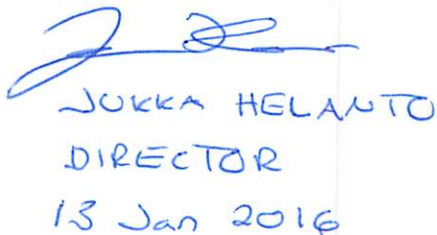 JUKKA HELANTO
DIRECTOR
13 Jan 2016